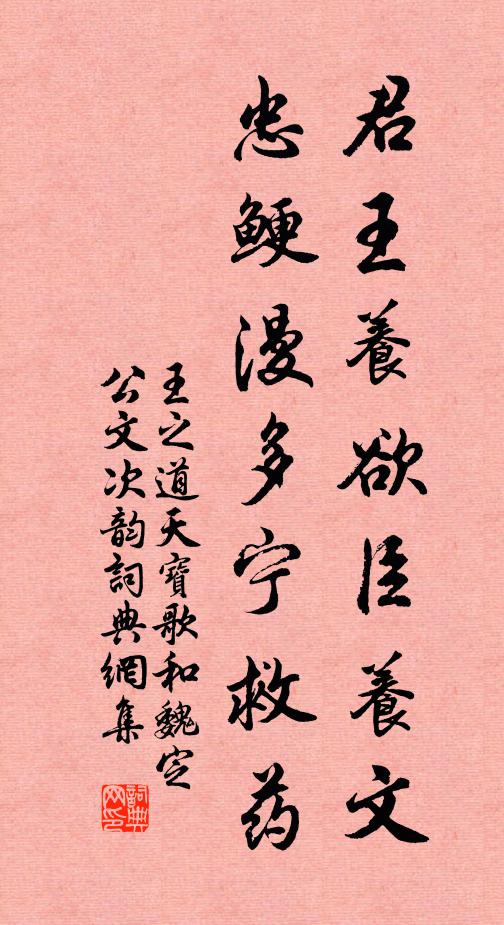 君王養欲臣養文
忠鯁漫多宁救药
王之道天寶歌和魏定
公文次韵詞典網集
詞典
网印